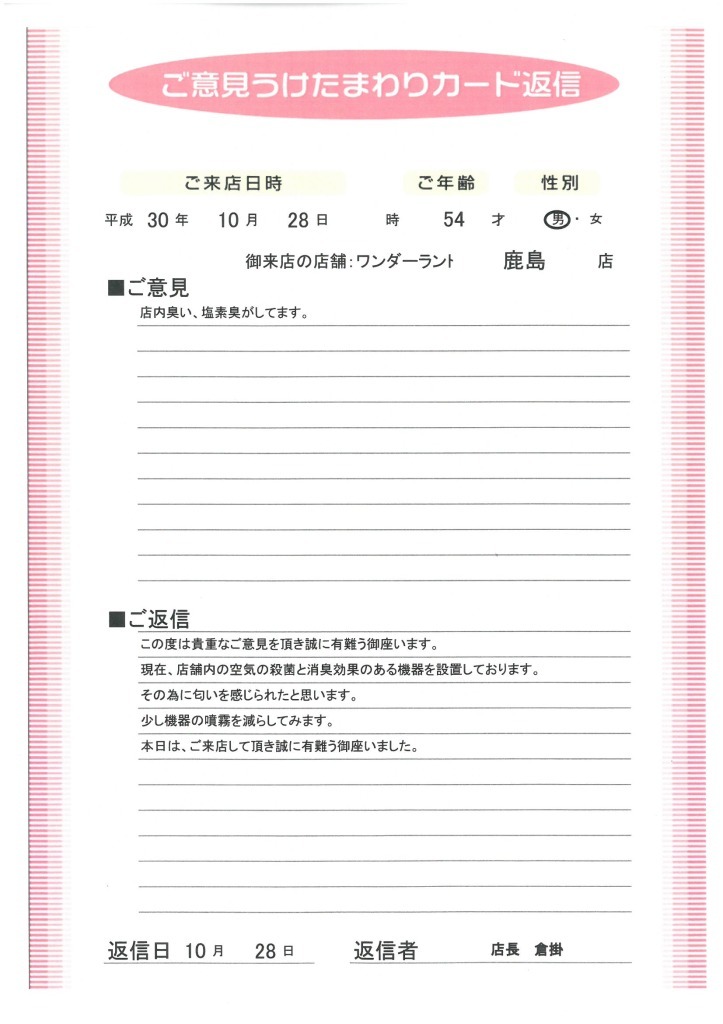 ご意見うけたまわりカード返信
ご来店日時 ご年齢 性別
平成 30 年 10 月 28 日 時 54 才 男・女
御来店の店舗：ワンダーラント 鹿島 店
■ご意見
店内臭い、塩素臭がしてます。
■ご返信
この度は貴重なご意見を頂き誠に有難う御座います。
現在、店舗内の空気の殺菌と消臭効果のある機器を設置しております。
その為に匂いを感じられたと思います。
少し機器の噴霧を減らしてみます。
本日は、ご来店して頂き誠に有難う御座いました。
返信日 10 月 28 日 返信者 店長 倉掛